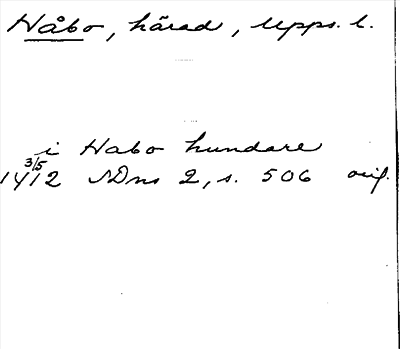 Håbo, härad, Upps. l.
i Habo hundare
3/5
1412 SDns 2, s. 506 orig.